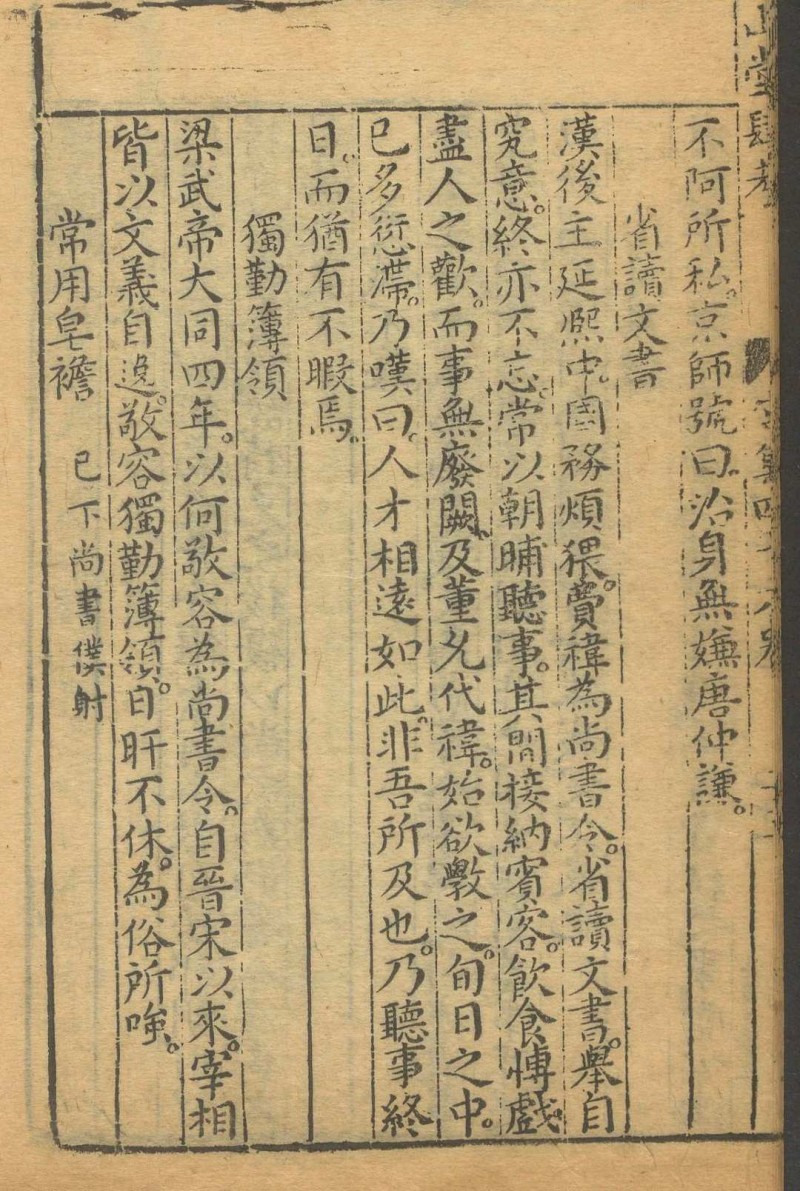 山堂肆考
不阿所私。京師號曰。治身無嫌唐仲謙。
省讀文書
漢後主延熙中。國務煩猥。費禕為尚書令。省讀文書。舉目
究意。終亦不忘。常以朝晡聽事。其間接納賓客。飲食博戲
盡人之歡。而事無廢闕。及董允代禕。始欲斆之。旬日之中。
已多愆滯。乃嘆曰。人才相遠如此。非吾所及也。乃聽事終
日。而猶有不暇焉。
獨勤簿領
梁武帝大同四年。以何敬容為尚書令。自晉宋以來。宰相
皆以文義自逸。敬容獨勤簿領。日旰不休。為俗所嗤。
常用皂襜 已下尚書僕射